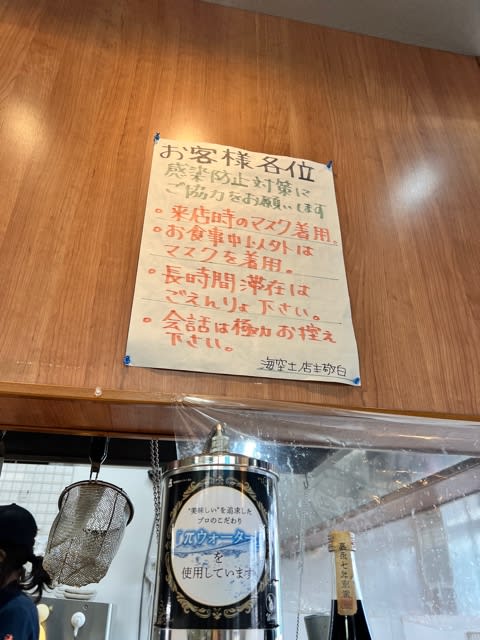 お客様各位
感染防止対策に
ご協力をお願いします
。来店時のマスク着用。
。お食事中以外は
マスクを着用。
。長時間滞在は
ごえんりょ下さい。
。会話は極力お控え
下さい。
海空土店主敬白
"美味しい"を追求した
プロのこだわり
πウォーター
を
使用しています